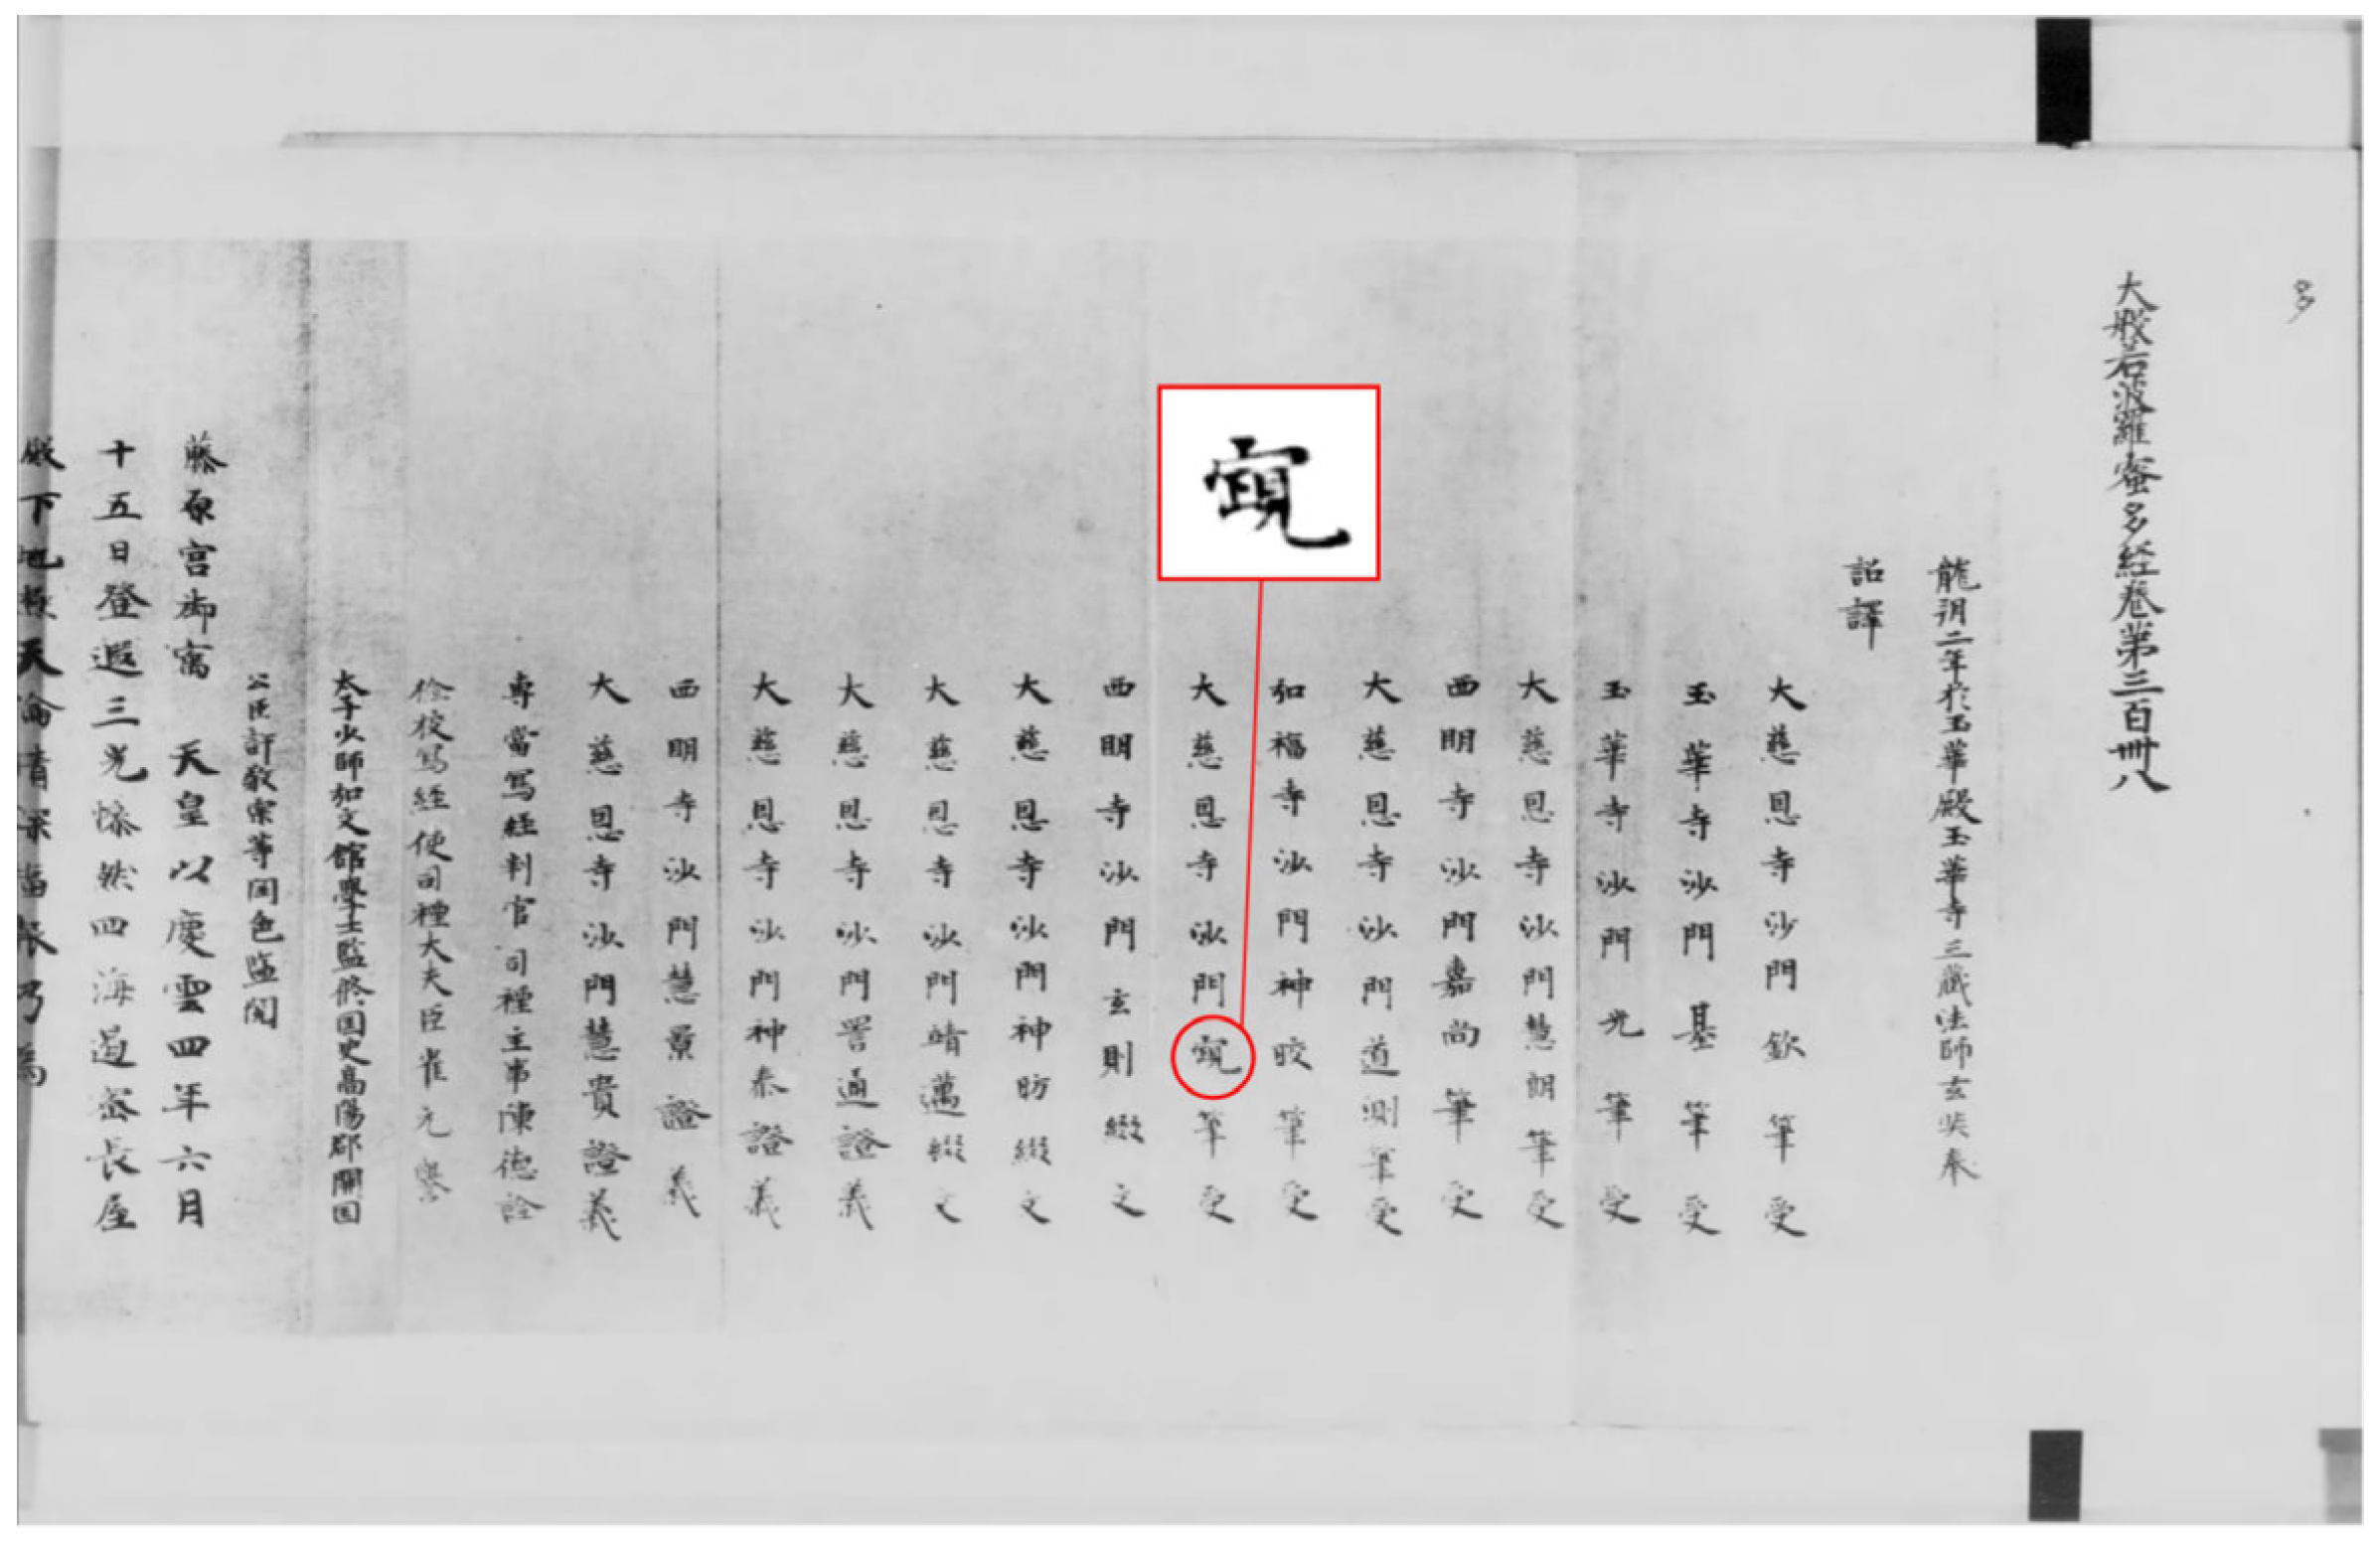 多
大般若波羅蜜多経卷第三百卌八
龍朔二年於玉華殿玉華寺三藏法師玄奘奉
詔譯
大慈恩寺沙門欽筆受
玉華寺沙門基筆受
玉華寺沙門光筆受
大慈恩寺沙門慧朗筆受
西明寺沙門嘉尚筆受
大慈恩寺沙門道測筆受
弘福寺沙門神皎筆受
大慈恩寺沙門筆受
西明寺沙門玄則綴文
大慈恩寺沙門神昉綴文
大慈恩寺沙門靖邁綴文
大慈恩寺沙門通證義
大慈恩寺沙門神泰證義
西明寺沙門慧景證義
大慈恩寺沙門慧貴證義
專當写経判官司禋主事陳德詮
撿挍写経使司禋大夫臣崔元譽
太子少師弘文館學士監修国史高陽郡開国
公臣許敬宗等閏色監閲
藤原宮御寓 天皇以慶雲四年六月
十五日登遐三光慘然四海遏密長屋
殿下地極天倫情深福報乃為